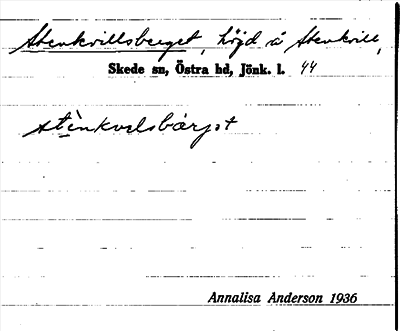 Stenkvillsberget, höjd å Stenkvill,
Skede sn, Östra hd, Jönk. l. 44
stènkvelsbärjət
Annalisa Anderson 1936